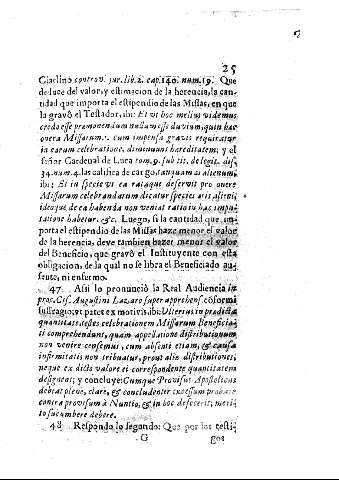 25
Giaclino controv. jur. lib. 2. cap. 140. num. 19. Que
deduce del valor, y estimacion de la herencia, la can-
tidad que importa el estipendio de las Missas, en que
la gravò el Testador, ibi: Et ut hoc melius videmus
credo esse præmonendum nullum esse duvium, quin hac
opera Missarum. cum impensa gravis requiratur
in earum celebratione, diminuunt hæreditatem; y el
señor Cardenal de Luca tom. 9. sub tit. de legit. dis.
34. num. 4. las califica de cargo, tanquam æs alienum
ibi: Et in specie
Missarum celebrandarum dicatur species æris alieni
ideoque de ea habenda non veniat ratio in hac impu-
tatione habetur. &c. Luego, si la cantidad que im-
porta el estipendio de las Missas haze menor el valor
de la herencia, deve tambien hazer menor el valor
del Beneficio, que gravò el Instituyente con esta
obligacion, de la qual no se libra el Beneficiado au-
sente, ni enfermo.
47. Assi lo pronunciò la Real Audiencia in
proc. Cis. Augustini Lazaro super apprehens. cõformi
suffragio; vt patet ex motivis. ibi: Vlterius in prædicta
quantitate, testes celebrationem Missarum Beneficia-
ti comprehendunt, quam appellatione distributionum
non venire censemus, cum absenti etiam, & causa
infirmitatis non tribuatur, prout aliæ distributiones,
neque ex dicto valore ei correspondente quantitatem
designent; y concluye: Cumque Provisus Apostolicus
debeat plenè, clarè, & concludenter excessum probare
contra provisum à Nuntio, & in hoc defecerit; meri-
to succumbere debere.
48. Respondo lo segundo: Que por los testi-
G gos